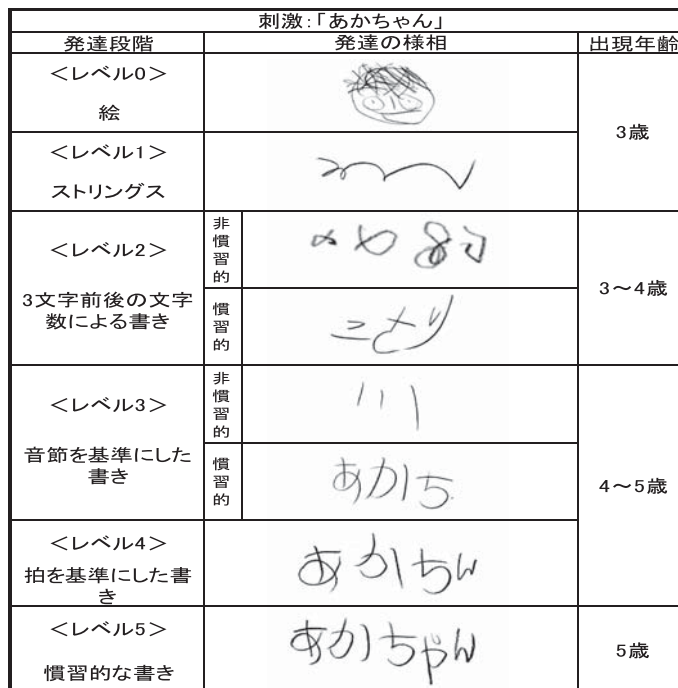 刺激:「あかちゃん」
発達段階 発達の様相 出現年齢
<レベル0>
絵
3歳
<レベル1>
ストリングス
<レベル2>
3文字前後の文字
数による書き
非慣習的
慣習的
こより
3~4歳
<レベル3>
音節を基準にした
書き
非慣習的
慣習的
あかち
4~5歳
<レベル4>
拍を基準にした書
き
あかちん
<レベル5>
慣習的な書き
あかちゃん
5歳